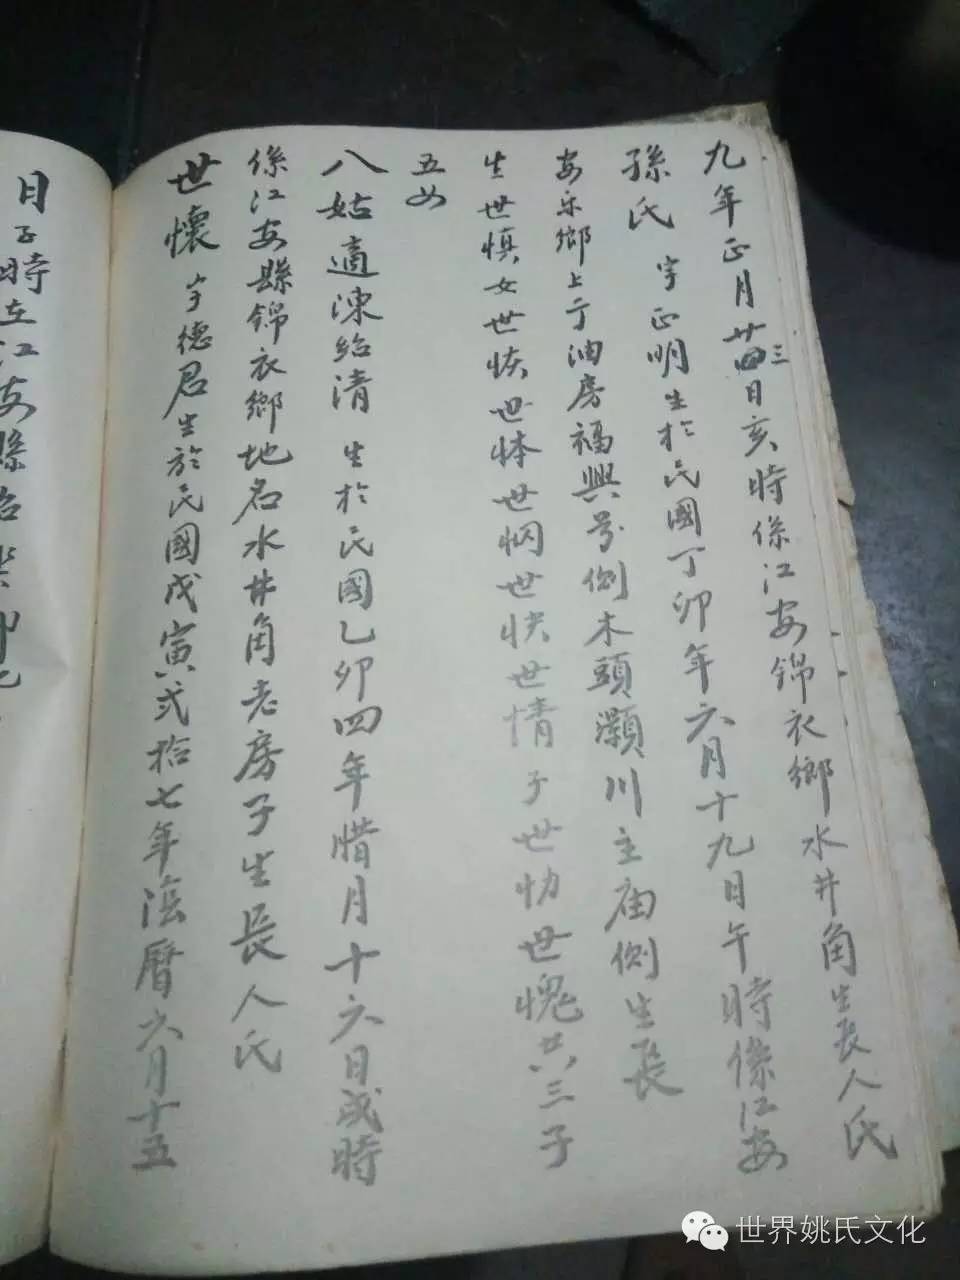 九年正月廿三日亥時係江安錦衣鄉水井角生長人氏
孫氏 字正明生於民國丁卯年六月十九日午時係江安
安樂鄉上亍油房福興号側木頭灝川主庙側生長
生世慎女世世世世快世情子世世愧共三子
五女
八姑適陳紹清 生於民國乙卯四年腊月十六日戌時
係江安縣錦衣鄉地名水井角老房子生長人氏
世懷 字德君生於民國戊寅弍拾七年隂曆六月十五
日子時在江安縣
世界姚氏文化